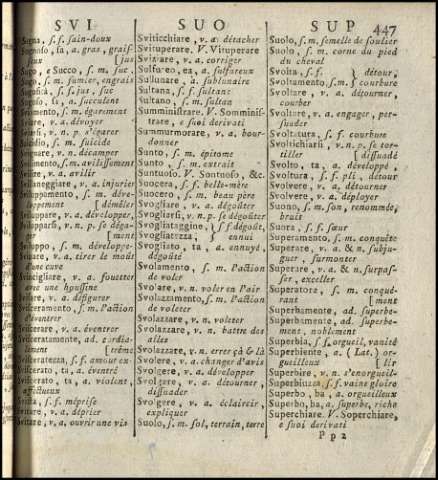 SVI
SUO
SUP
447
Sugna, s. f. sain-doux
sa, a. gras, grais-
seux [ grais
Sugo, e Succo, s. m. suc,
s. m. fumier, engrais
s. f. jus, suc
sa, a. succulent
s. m. égarement
v. a. dévoyer
v. n. p. s'égarer
Suicidio, s. m. suicide
v. n. décamper
s. m. avilissement
v. a. avilir
Svillaneggiare, v. a. injurier
Sviluppamento, s. m. déve-
loppement [ démêler
Sviluppare, v. a. développer,
Svilupparsi, v. n. p. se déga-
ger [ ment
Sviluppo, s. m. développe-
v. a. tirer le moût
d'une cuve
v. a. fouetter
avec une houssine
v. a. défigurer
Svisceramento, s. m. l'action
d'éventrer
Sviscerare, v. a. éventrer
Svisceratamente, ad. cordia-
lement [ trême
Svisceratezza, s. f. amour ex-
Sviscerato, ta, a. éventré
ta, a. violent,
affectueux
Svista, s. f. méprise
v. a. déprier
v. a. ouvrir une vis
Sviticchiare, v. a. détacher
Svituperare. V. Vituperare
Sviziare, v. a. corriger
Sulfureo, ea, a. sulfureux
Sullunare, a. sublunaire
Sultana, s. f. sultane
Sultano, s. m. sultan
Sumministrare. V. Somminis-
trare, e suoi derivati
Summurmorare, v. a. bour-
donner
Sunto, s. m. épitome
Sunto, s. m. extrait
Suntuoso. V. Sontuoso, &c.
Suocera, s. f. belle-mère
Suocero, s. m. beau père
Svogliare, v. a. dégoûter
Svogliarsi, v. n. p. se dégoûter
Svogliataggine, } s. f. dégoût,
Svogliatezza, } ennui
Svogliato, ta, a. ennuyé,
dégoûté
Svolamento, s. m. l'action
de voler
Svolare, v. n. voler en l'air
Svolazzamento, s. m. l'action
de voleter
Svolazzare, v. n. voleter
Svolazzare, v. n. battre des
ailes
Svolazzare, v. n. errer çà & là
Svolere, v. a. changer d'avis
Svolgere, v. a. développer
Svolgere, v. a. détourner,
dissuader
Svolgere, v. a. éclaircir,
expliquer
Suolo, s. m. sol, terrain, terre
Suolo, s. m. semelle de soulier
Suolo, s. m. corne du pied
du cheval
Svolta, s. f. } détour,
Svoltamento, s. m. } courbure
Svoltare, v. a. détourner,
courber
Svoltare, v. a. engager, per-
suader
Svoltatura, s. f. courbure
Svoltichiarsi, v. n. p. se tor-
tiller [ dissuadé
Svolto, ta, a. développé,
Svoltura, s. f. pli, détour
Svolvere, v. a. détourner
Svolvere, v. a. déployer
Suono, s. m. son, renommée,
bruit
Suora, s. f. sœur
Superamento, s. m. conquête
Superare, v. a. & n. subju-
guer, surmonter
Superare, v. a. & n. surpas-
ser, exceller
Superatore, s. m. conqué-
rant [ ment
Superbamente, ad. superbe-
Superbamente, ad. superbe-
ment, noblement
Superbia, s. f. orgueil, vanité
Superbiente, a. (Lat.) or-
gueilleux [ lir
Superbire, v. n. s'enorgueil-
Superbiuzza, s. f. vaine gloire
Superbo, ba, a. orgueilleux
Superbo, ba, a. superbe, riche
Superchiare. V. Soperchiare,
e suoi derivati
Pp2